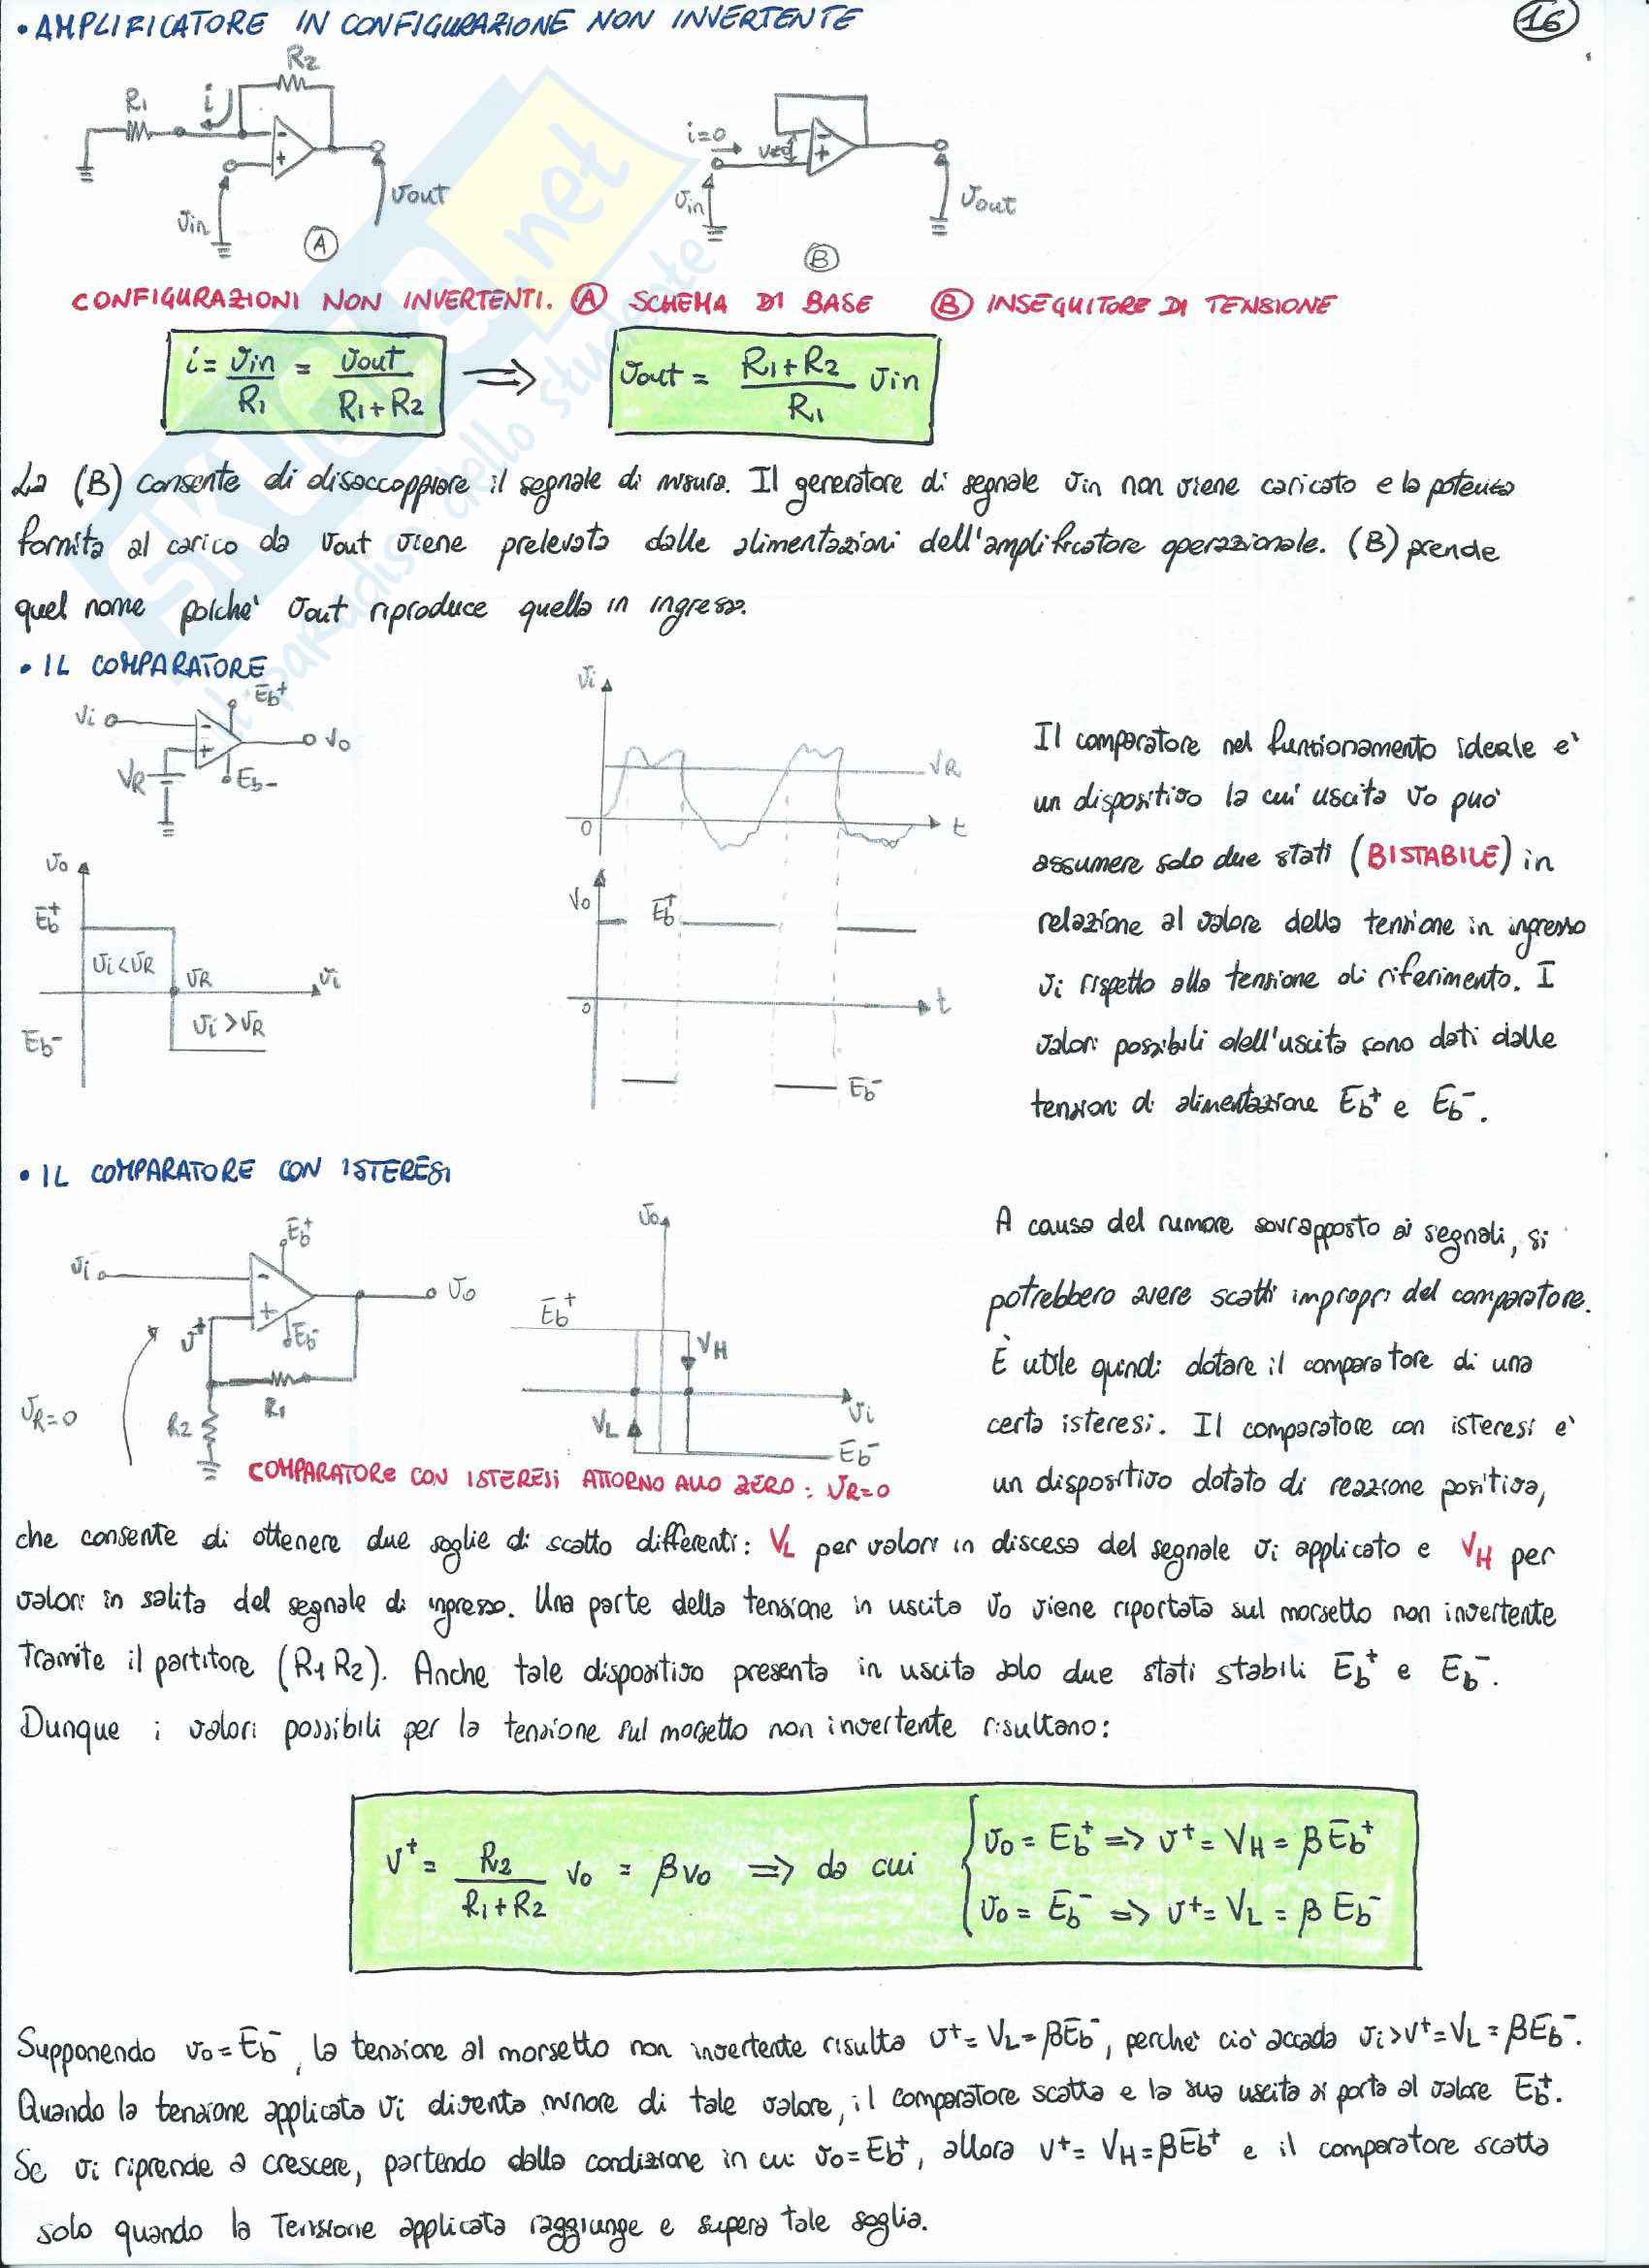 • AMPLIFICATORE IN CONFIGURAZIONE NON INVERTENTE
16
R1
i
R2
-
+
vin
vout
A
i=0
v=0
-
+
vin
vout
B
CONFIGURAZIONI NON INVERTENTI. A SCHEMA DI BASE B INSEGUITORE DI TENSIONE
i = vin/R1 = vout/(R1+R2) ⇒ vout = (R1+R2)/R1 vin
La (B) consente di disaccoppiare il segnale di misura. Il generatore di segnale vin non viene caricato e la potenza
fornita al carico da vout viene prelevata dalle alimentazioni dell'amplificatore operazionale. (B) prende
quel nome poichè vout riproduce quella in ingresso.
• IL COMPARATORE
vi
Eb+
-
+
vo
VR
Eb-
vo
Eb+
vi<vR
vR
vi
vi>vR
Eb-
vi
VR
0
t
Vo
Eb+
0
t
Eb-
Il comparatore nel funzionamento ideale è
un dispositivo la cui uscita vo può
assumere solo due stati (BISTABILE) in
relazione al valore della tensione in ingresso
vi rispetto alla tensione di riferimento. I
valori possibili dell'uscita sono dati dalle
tensioni di alimentazione Eb+ e Eb-.
• IL COMPARATORE CON ISTERESI
vi
Eb+
-
+
vo
v+
Eb-
R1
R2
vR=0
vo
Eb+
VH
VL
vi
Eb-
COMPARATORE CON ISTERESI ATTORNO ALLO ZERO: vR=0
A causa del rumore sovrapposto ai segnali, si
potrebbero avere scatti impropri del comparatore.
È utile quindi dotare il comparatore di una
certa isteresi. Il comparatore con isteresi è
un dispositivo dotato di reazione positiva,
che consente di ottenere due soglie di scatto differenti: VL per valori in discesa del segnale vi applicato e VH per
valori in salita del segnale di ingresso. Una parte della tensione in uscita vo viene riportata sul morsetto non invertente
tramite il partitore (R1 R2). Anche tale dispositivo presenta in uscita solo due stati stabili Eb+ e Eb-.
Dunque i valori possibili per la tensione sul morsetto non invertente risultano:
v+ = R2/(R1+R2) vo = βvo ⇒ da cui
vo = Eb+ ⇒ v+ = VH = βEb+
vo = Eb- ⇒ v+ = VL = βEb-
Supponendo vo = Eb-, la tensione al morsetto non invertente risulta v+ = VL = βEb-, perchè ciò accada vi>v+=VL=βEb-.
Quando la tensione applicata vi diventa minore di tale valore, il comparatore scatta e la sua uscita si porta al valore Eb+.
Se vi riprende a crescere, partendo dalla condizione in cui vo=Eb+, allora v+=VH=βEb+ e il comparatore scatta
solo quando la tensione applicata raggiunge e supera tale soglia.
SKUOLA.net
il paradiso dello studente